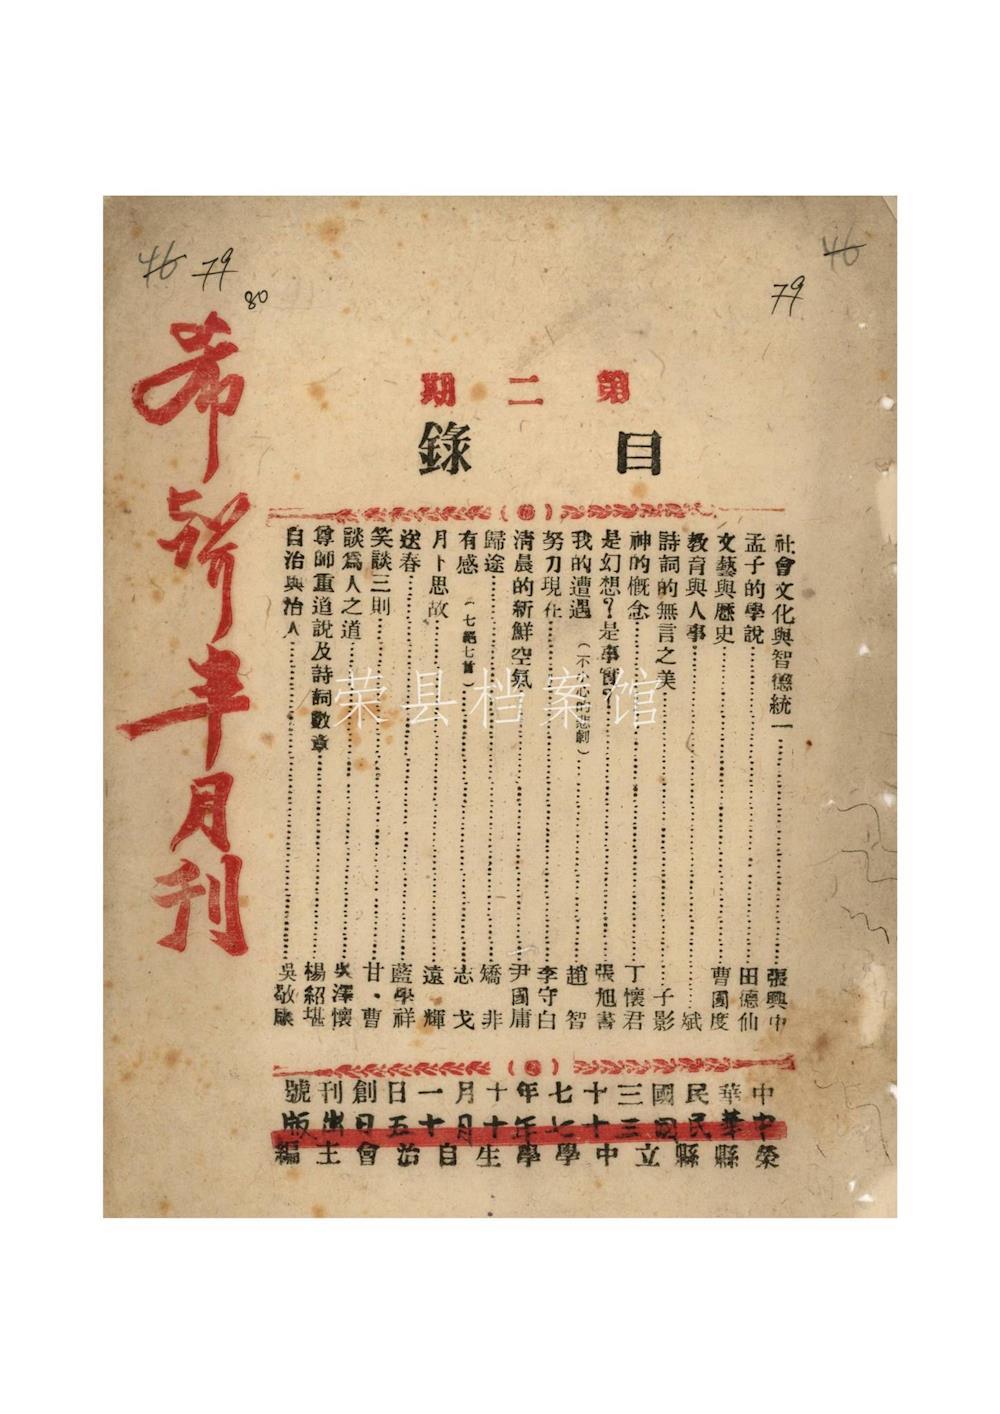 46
79
80
46
79
希聲半月刊
第二期
目錄
社會文化與智德統一 張興中
孟子的學說 田德仙
文藝與歷史 曹國度
教育與人事 斌
詩詞的無言之美 子影
神的概念 丁懷君
是幻想？是事實？ 張旭書
我的遭遇（不小心的悲劇） 趙智
努力現在 李守白
清晨的新鮮空氣 尹國庸
歸途 矯非
有感（七絕七首） 志戈
月下思故 遠輝
送春 藍學祥
笑談三則 甘·曹
談為人之道 吳澤懷
尊師重道說及詩詞數章 楊紹堪
自治與治人 吳敬康
中華民國三十七年十月一日創刊號
中華民國三十七年十月十五日出版
榮縣縣立中學學生自治會主編
荣县档案馆